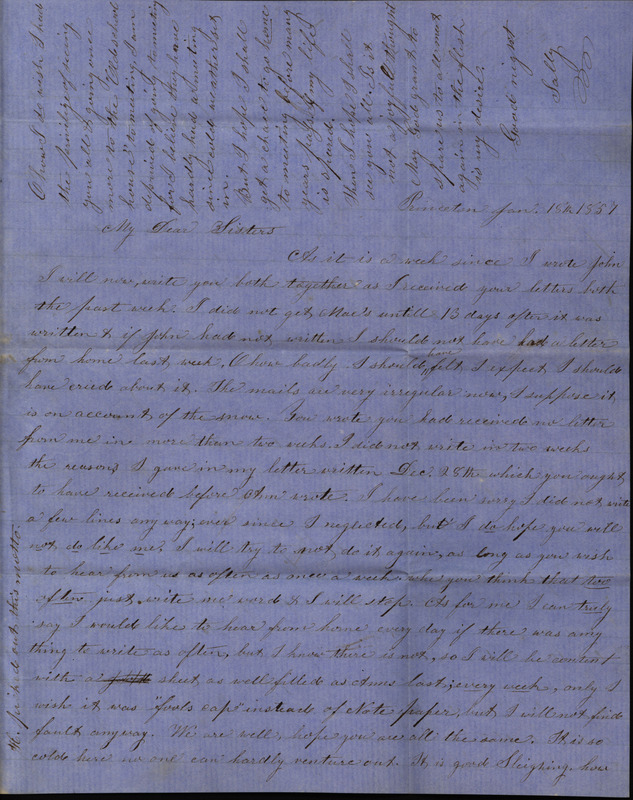 Princeton Jan. 18th 1857
My Dear Sisters
As it is a week since I wrote John
I will now write you both together as I received your letters both
the past week. I did not get Mae's untill 13 days after it was
written & if John had not written I should not have had a letter
from home last week, O how badly I should have felt I expect I should
have cried about it. The mails are very irregular now, I suppose it
is on account of the snow. You wrote you had received no letter
from me in more than two weeks. I did not write in two weeks
the reasons I gave in my letter written Dec. 28th which you ought
to have received before Ann wrote. I have been sorry I did not write
a few lines any way, ever since I neglected, but I do hope you will
not do like me, I will try to not do it again, as long as you wish
to hear from us as often as once a week. when you think that too
often just write me word & I will stop. As for me I can truly
say I would like to hear from home every day if there was any
thing to write as often, but I know there is not, so I will be content
with a sheet as well filled as Anns last, every week, only I
wish it was "fools cap" instead of Note paper, but I will not find
fault anyway. We are well, hope you are all the same. It is so
cold here no one can hardly venture out. It is good Sleighing. how
O how I do wish I had
the privilege of seeing
you all & going once
more to the "Old school
house" to meeting. I am
deprived of going to meeting
for I believe they have
hardly had a meeting
since cold weather set
in.
But I hope I shall
get a chance to go home
to meeting before many
years pass, if my life
is spared.
Then I hope I shall
see you all. Is it
not a joyful thought
May God grant to
spare us to all meet
again in the flesh
is my desire.
Good night
Sally
picked out this motto.